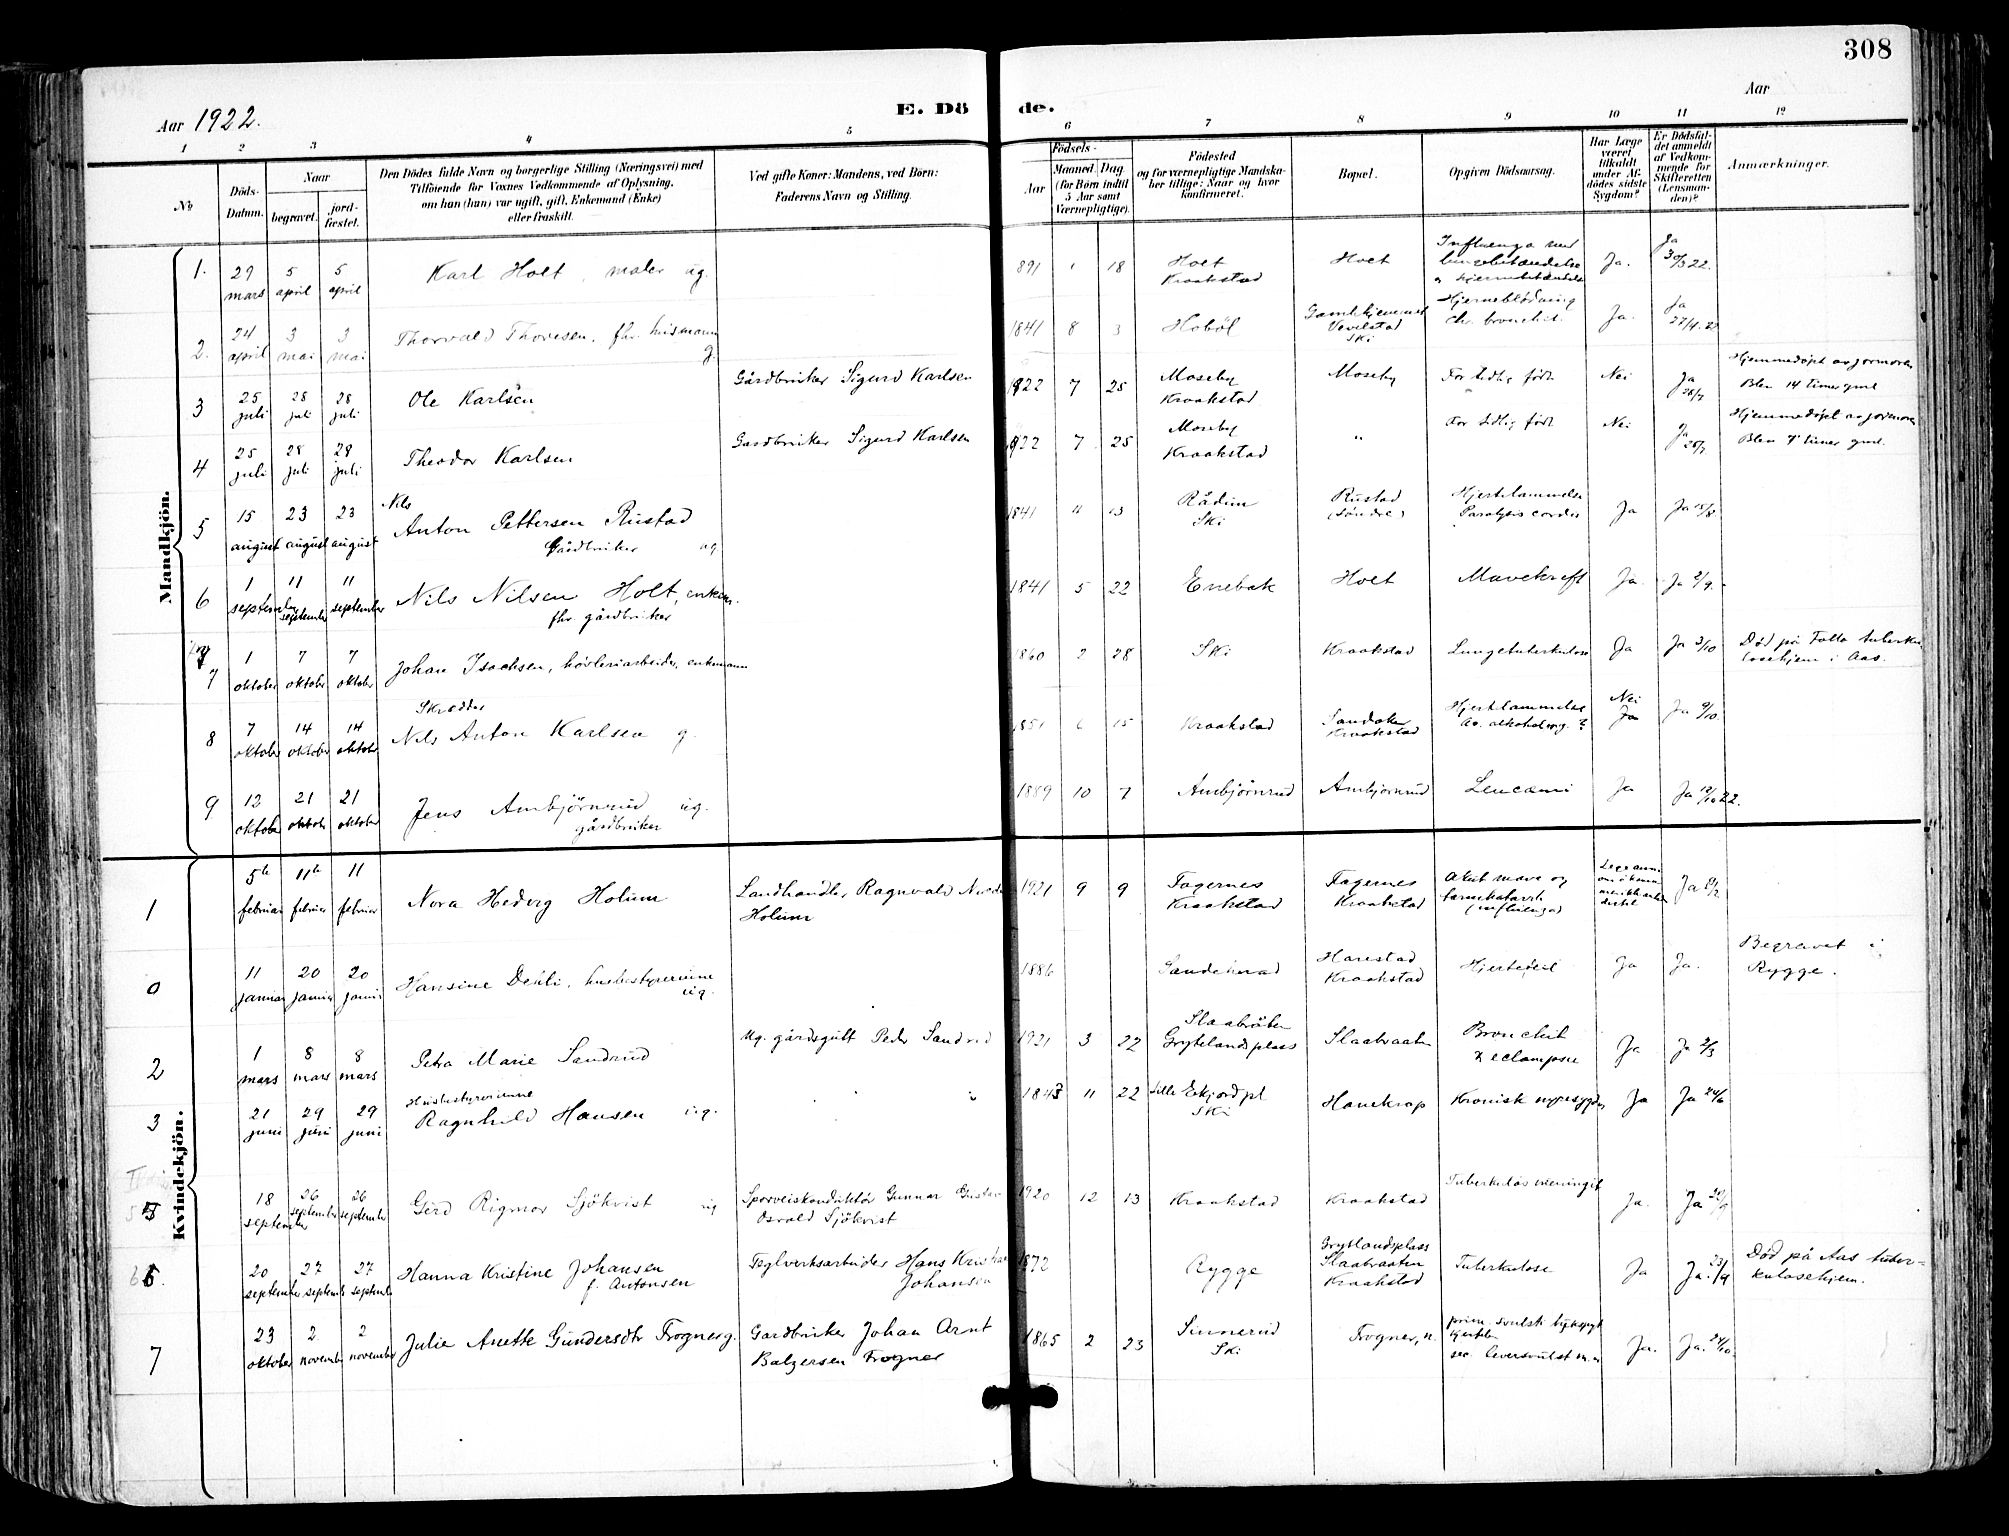 308
Aar 1922.
E. Dö de.
Aar
1 2 3 4 5 6 7 8 9 10 11 12
No
Döds-
Datum.
Naar
begravet.
jord-
fæstet.
Den Dödes fulde Navn og borgerlige Stilling (Næringsvei) med
Tilföiende for Voxnes Vedkommende af Oplysning,
om han (hun) var ugift, gift, Enkemand (Enke)
eller fraskilt.
Ved gifte Koner: Mandens, ved Börn:
Faderens Navn og Stilling.
Födsels-
Aar
Maaned Dag
(for Börn indtil
5 Aar samt
Værnepligtige).
Födested
og for værnepligtige Mandska-
ber tillige: Naar og hvor
konfirmeret.
Bopæl.
Opgiven Dödsaarsag.
Har Læge
været
tilkaldt
under Af-
dödes sidste
Sygdom?
Er Dödsfal-
det anmeldt
af Vedkom-
mende for
Skifteretten
(Lensman-
den)?
Anmærkninger.
Mandkjön.
1. 29 mars 5 april 5 april Karl Holt, maler ug. 891 1 18 Holt Kraakstad Holt Influenza med lungebetændelse Ja. Ja 30/3 22.
2. 24 april 3 mai 3 mai Thorvald Thoresen, fhv. husmann g. 1841 8 3 Hobøl Gamlehjemmet Vevelstad Ski Hjerneblødning chr. bronchit. Ja. Ja 27/4
3 25 juli 28 juli 28 juli Ole Karlsen Gårdbruker Sigurd Karlsen 1922 7 25 Moseby Kraakstad Moseby For tidlig født Nei Ja 28/7 Hjemmedøpt av jormoren Blev 14 timer gml
4 25 juli 28 juli 28 juli Theodor Karlsen Gardbruker Sigurd Karlsen 922 7 25 Moseby Kraakstad " For tidlig født Nei Ja Hjemmedøpt av jormoren Blev 7 timer gml.
5 15 august 23 august 23 august Nils Anton Pettersen Rustad Gårdbruker ug. 1841 11 13 Rådim Ski Rustad (søndre) Hjertelammelse Paralysis cordis Ja Ja 15/8
6 1 september 11 september 11 september Nils Nilsen Holt, enkem. fhv. gårdbruker 1841 5 22 Enebak Holt Mavekreft Ja. Ja 2/9
7 1 oktober 7 oktober 7 oktober Johan Isachsen, høvleriarbeider, enkemann 1860 2 28 Ski Kraakstad Lungetuberkulose Ja Ja 3/10 Død på Follo tuberku- losehjem i Aas.
8 7 oktober 14 oktober 14 oktober Skredder Nils Anton Karlsen g. 1851 6 15 Kraakstad Sandaker Kraakstad Hjertelammelse Ac. alkoholorg.? Nei Ja Ja 9/10.
9 12 oktober 21 oktober 21 oktober Jens Ambjørnrud ug. gårdbruker 1889 10 7 Ambjørnrud Ambjørnrud Leucæmi Ja Ja 12/10 22.
Kvindekjön.
1 5te februar 11te februar 11 februar Nora Hedvig Holum Landhandler Ragnvald Holum 1921 9 9 Fagernes Kraakstad Fagernes Kraakstad Akut mave og tarmkatarrh (influenza) Ja
0 11 januar 20 januar 20 januar Hansine Dehli, husbestyrerinne ug. 1886 Sandeherad Harestad Kraakstad Hjertefeil Ja Ja. Begravet i Rygge.
2 1 mars 8 mars 8 mars Petra Marie Sandrud Ug. gårdsgutt Peder Sandrud 1921 3 22 Slaabråten Grytelandsplass Slaabraaten Bronchit & eclampsie Ja Ja 2/3
3 21 juni 29 juni 29 juni Husbestyrerinne Ragnhild Hansen ug. " 1843 11 22 Lille Ekjord pl Ski Hanekrap Kronisk nyresygdom Ja Ja 24/6
5 18 september 26 september 26 september Gerd Rigmor Sjökvist ug Sporveiskonduktør Gunnar Gustav Osvald Sjökvist 1920 12 13 Kraakstad Kraakstad Tuberkuløs meningit Ja. Ja
6 20 september 27 september 27 september Hanna Kristine Johansen f. Antonsen Teglverksarbeider Hans Kristian Johansen 1872 Rygge Grytlandsplass Slaabraaten Kraakstad Tuberkulose Ja Ja. 23/9 Død på Aas tuber- kulosehjem.
7 23 oktober 2 november 2 november Julie Anette Gundersdtr Frogner g. Gardbruker Johan Arnt Balzersen Frogner 1865 2 23 Sinnerud Ski Frogner, n. prim. svulst hjertelen sec. leversvulst m.m Ja. Ja. 24/10